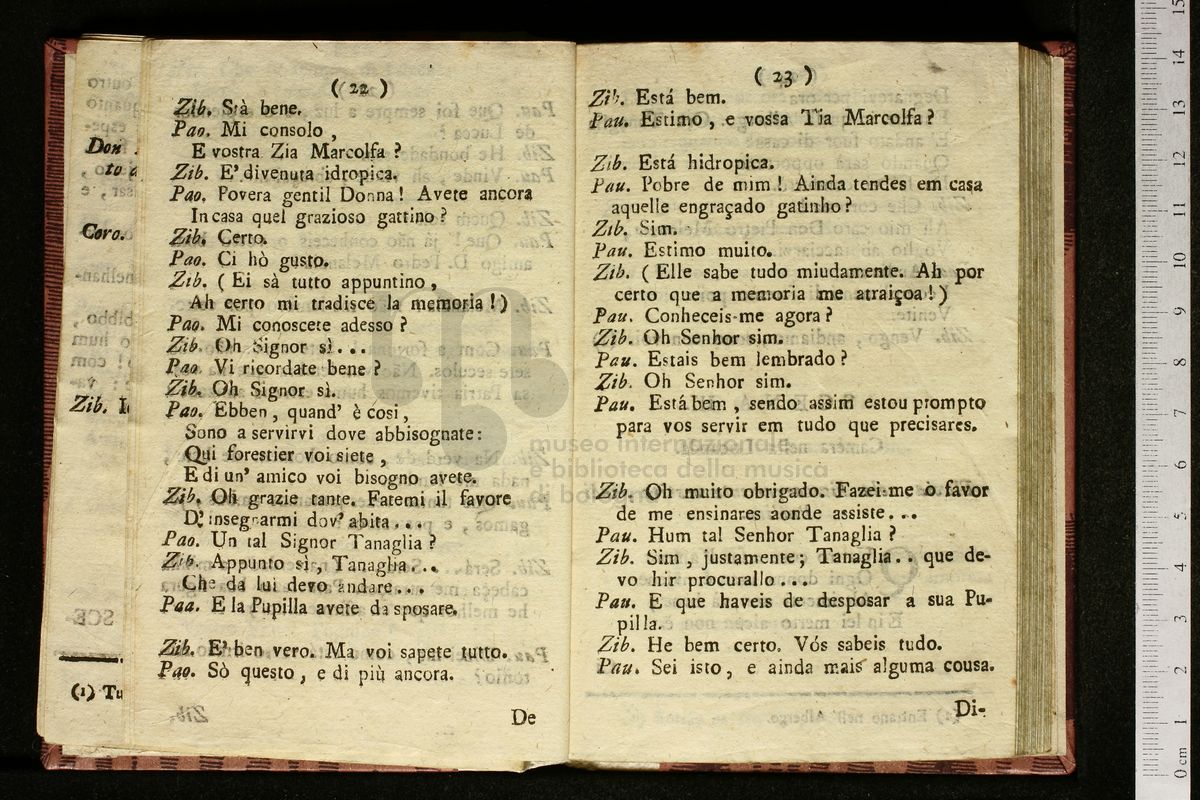 Don
Coro.
Zib.
(1) Tu
( 22 )
Zib. Stà bene.
Pao. Mi consolo ,
E vostra Zia Marcolfa ?
Zib. E' divenuta idropica.
Pao. Povera gentil Donna! Avete ancora
In casa quel grazioso gattino ?
Zib. Certo.
Pao. Ci hò gusto.
Zib. ( Ei sà tutto appuntino ,
Ah certo mi tradisce la memoria ! )
Pao. Mi conoscete adesso ?
Zib. Oh Signor sì...
Pao. Vi ricordate bene ?
Zib. Oh Signor sì.
Pao. Ebben , quand' è cosi ,
Sono a servirvi dove abbisognate:
Qui forestier voi siete ,
E di un' amico voi bisogno avete.
Zib. Oh grazie tante. Fatemi il favore
D' insegnarmi dov' abita...
Pao. Un tal Signor Tanaglia ?
Zib. Appunto sì, Tanaglia..
Che da lui devo andare...
Paa. E la Pupilla avete da sposare.
Zib. E' ben vero. Ma voi sapete tutto.
Pao. Sò questo , e di più ancora.
De
( 23 )
Zib. Está bem.
Pau. Estimo , e vossa Tia Marcolfa ?
Zib. Está hidropica.
Pau. Pobre de mim ! Ainda tendes em casa
aquelle engraçado gatinho ?
Zib. Sim.
Pau. Estimo muito.
Zib. ( Elle sabe tudo miudamente. Ah por
certo que a memoria me atraiçoa ! )
Pau. Conheceis-me agora ?
Zib. Oh Senhor sim.
Pau. Estais bem lembrado ?
Zib. Oh Senhor sim.
Pau. Está bem , sendo assim estou prompto
para vos servir em tudo que precisares.
Zib. Oh muito obrigado. Fazei-me o favor
de me ensinares aonde assiste...
Pau. Hum tal Senhor Tanaglia ?
Zib. Sim , justamente ; Tanaglia.. que de-
vo hir procurallo...
Pau. E que haveis de desposar a sua Pu-
pilla.
Zib. He bem certo. Vós sabeis tudo.
Pau. Sei isto , e ainda mais alguma cousa.
Di-
museo internazionale
e biblioteca della musica
0 cm 1 2 3 4 5 6 7 8 9 10 11 12 13 14 15